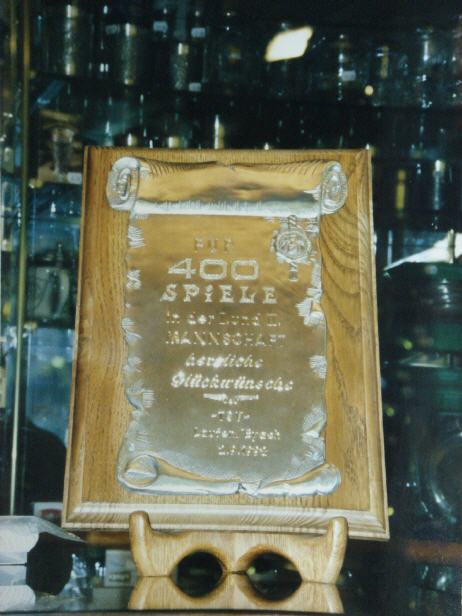 FÜR
400
SPiELE
in der I.und II.
MANNSCHAFT
herzliche
Glückwünsche
der
-TSV-
Laufen/Eyach
2.9.1992